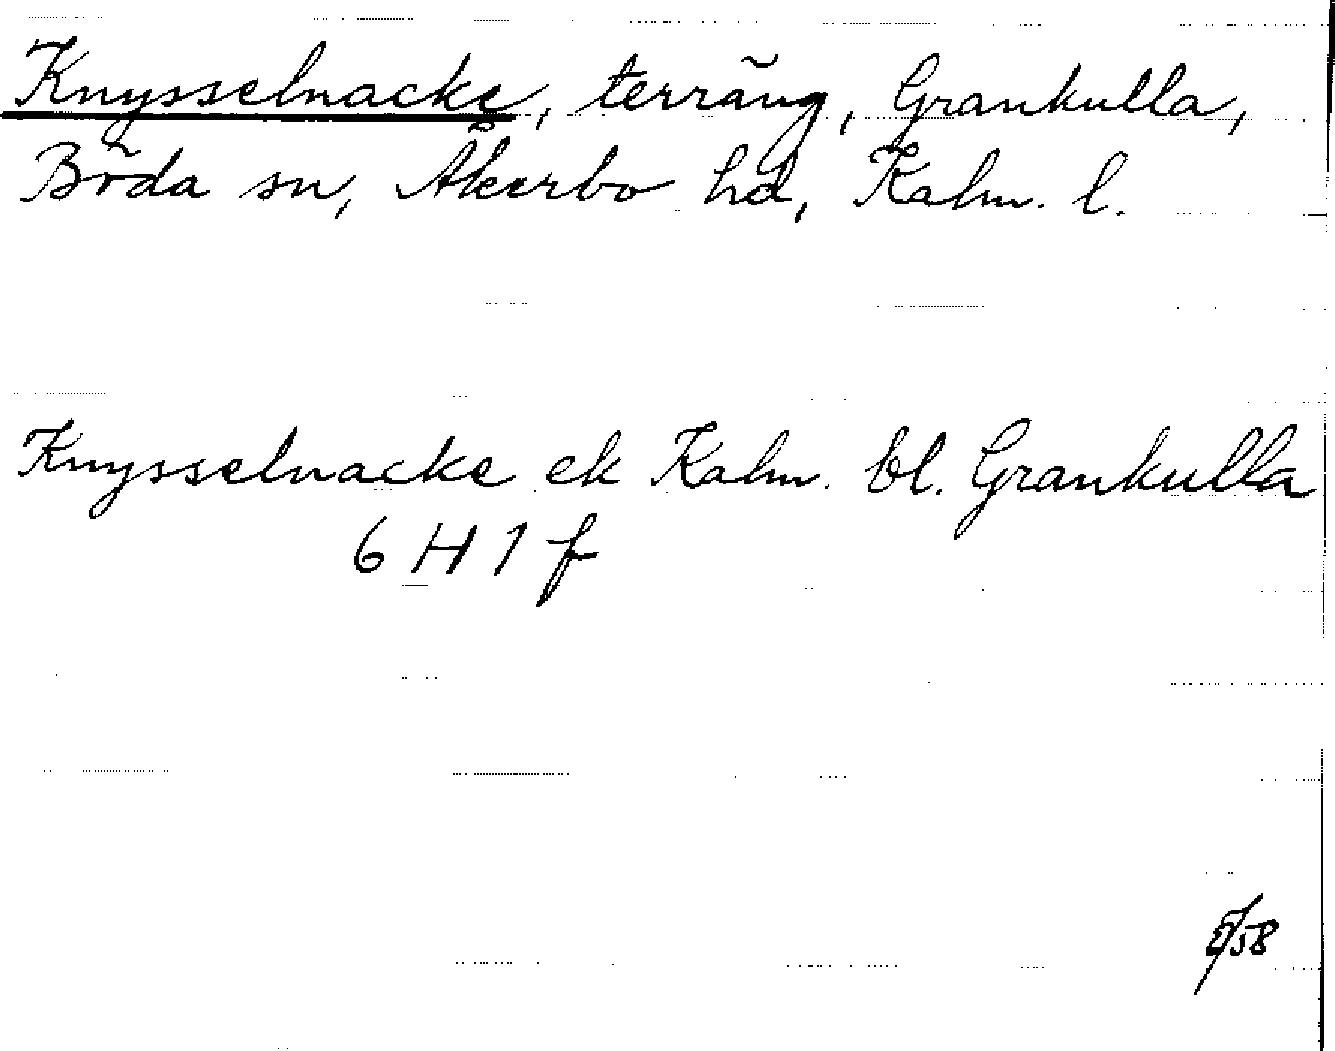 Knysselnacke, terräng, Grankulla,
Böda sn, Åkerbo hd, Kalm. l.
Knysselnacke ek Kalm. bl. Grankulla
6 H 1 f